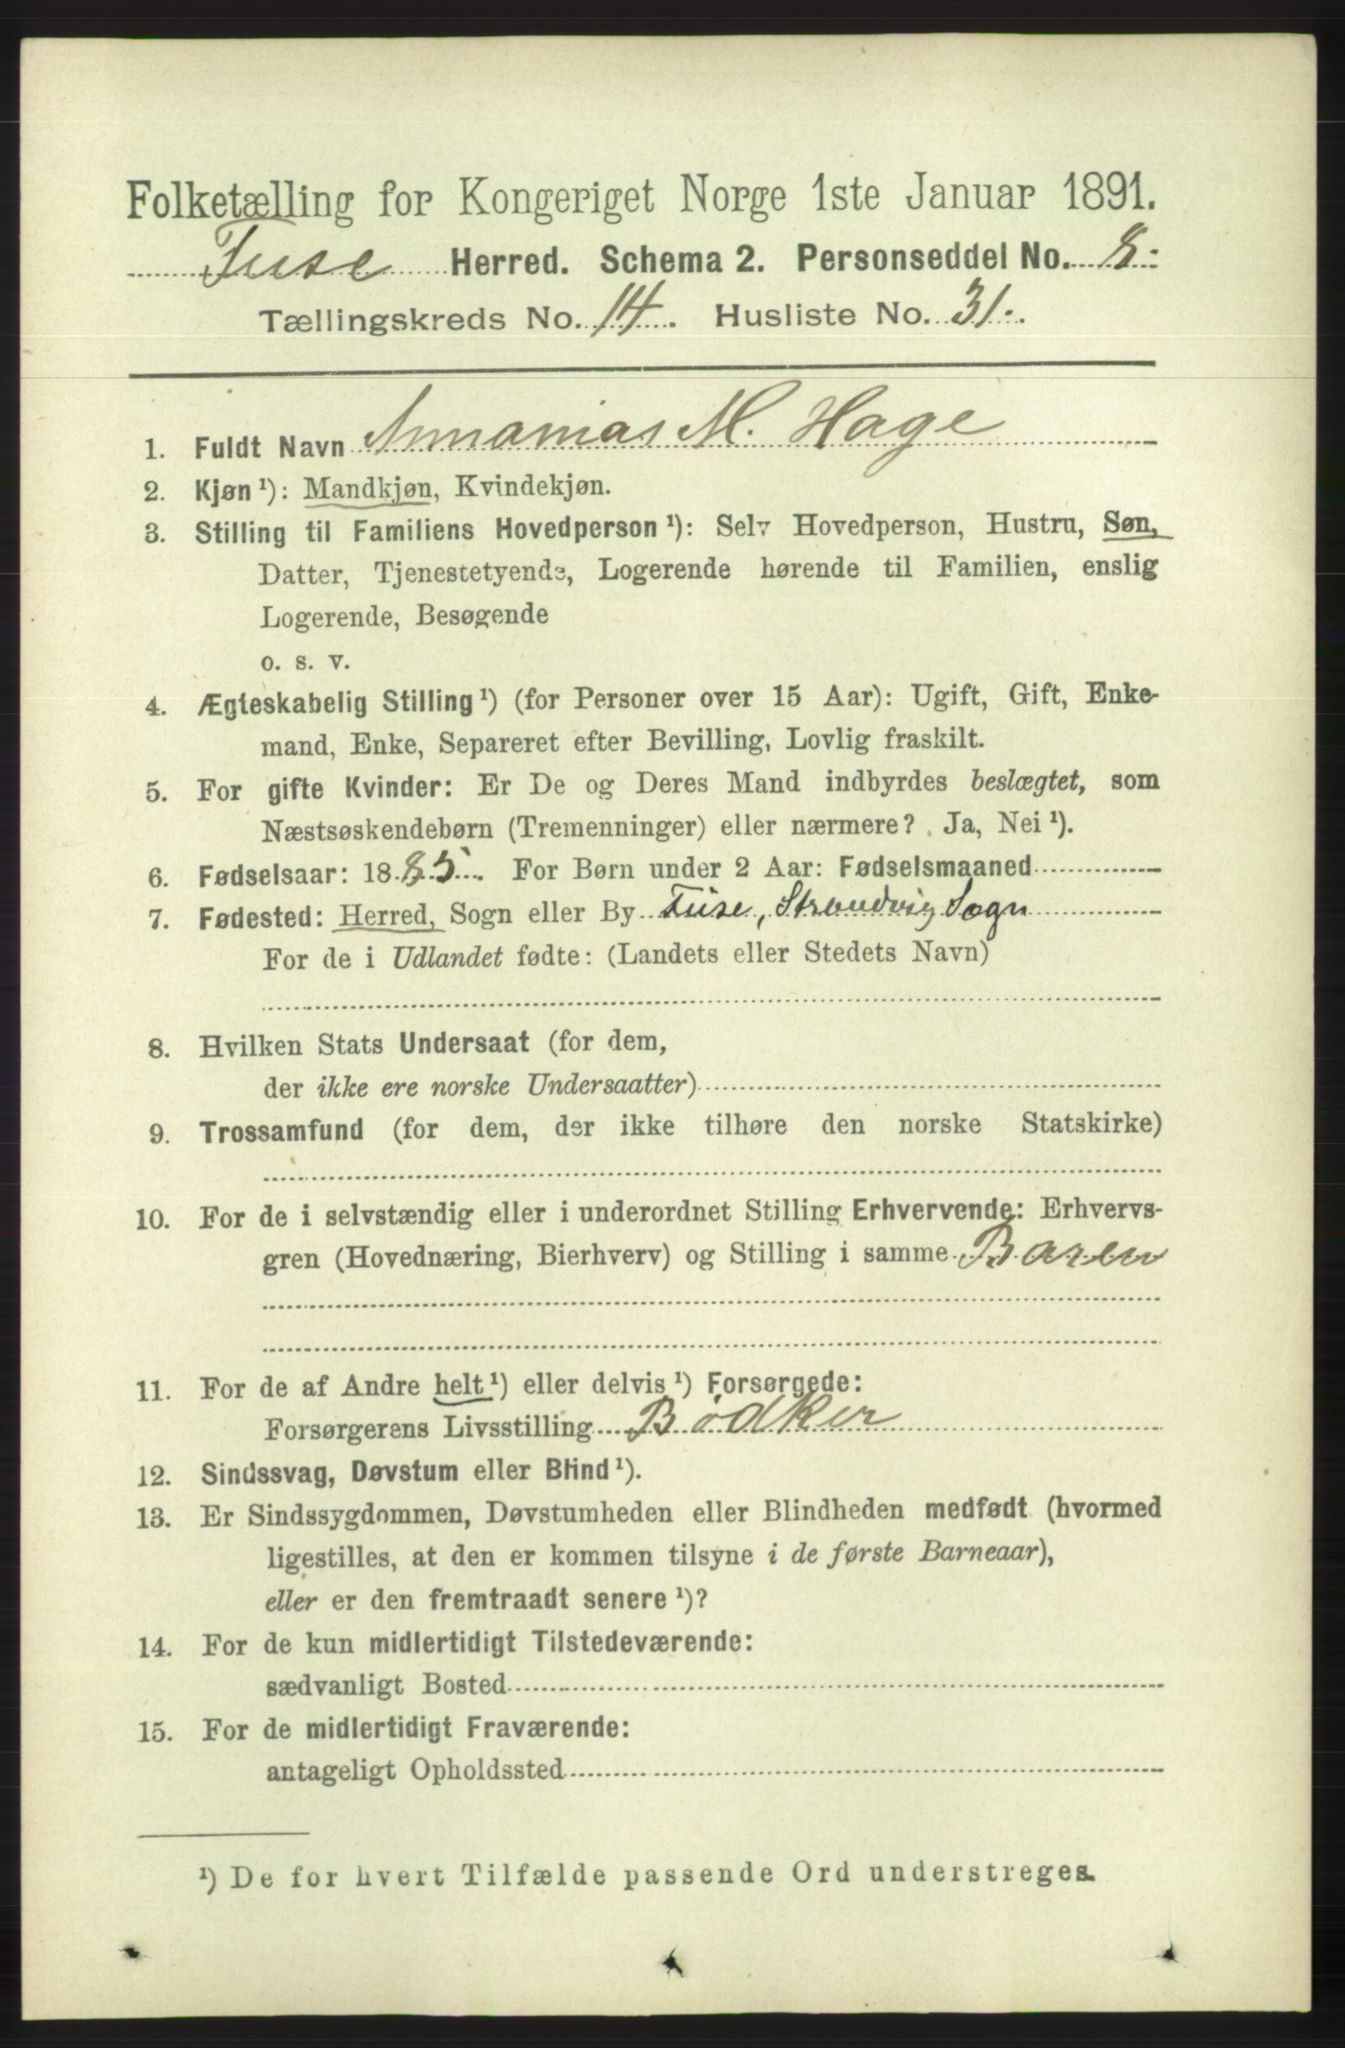 Folketælling for Kongeriget Norge 1ste Januar 1891.
Fuse Herred. Schema 2. Personseddel No. 8.
Tællingskreds No. 14. Husliste No. 31.
1. Fuldt Navn Annanias M. Hage
2. Kjøn¹): Mandkjøn, Kvindekjøn.
3. Stilling til Familiens Hovedperson¹): Selv Hovedperson, Hustru, Søn,
Datter, Tjenestetyende, Logerende hørende til Familien, enslig
Logerende, Besøgende
o. s. v.
4. Ægteskabelig Stilling¹) (for Personer over 15 Aar): Ugift, Gift, Enke-
mand, Enke, Separeret efter Bevilling, Lovlig fraskilt.
5. For gifte Kvinder: Er De og Deres Mand indbyrdes beslægtet, som
Næstsøskendebørn (Tremenninger) eller nærmere? Ja, Nei¹).
6. Fødselsaar: 1885. For Børn under 2 Aar: Fødselsmaaned
7. Fødested: Herred, Sogn eller By Fuse, Strandvig Sogn
For de i Udlandet fødte: (Landets eller Stedets Navn)
8. Hvilken Stats Undersaat (for dem,
der ikke ere norske Undersaatter)
9. Trossamfund (for dem, der ikke tilhøre den norske Statskirke)
10. For de i selvstændig eller i underordnet Stilling Erhvervende: Erhvervs-
gren (Hovednæring, Bierhverv) og Stilling i samme Baren
11. For de af Andre helt¹) eller delvis¹) Forsørgede:
Forsørgerens Livsstilling Bødker
12. Sindssvag, Døvstum eller Blind¹).
13. Er Sindssygdommen, Døvstumheden eller Blindheden medfødt (hvormed
ligestilles, at den er kommen tilsyne i de første Barneaar),
eller er den fremtraadt senere¹)?
14. For de kun midlertidigt Tilstedeværende:
sædvanligt Bosted
15. For de midlertidigt Fraværende:
antageligt Opholdssted
¹) De for hvert Tilfælde passende Ord understreges.